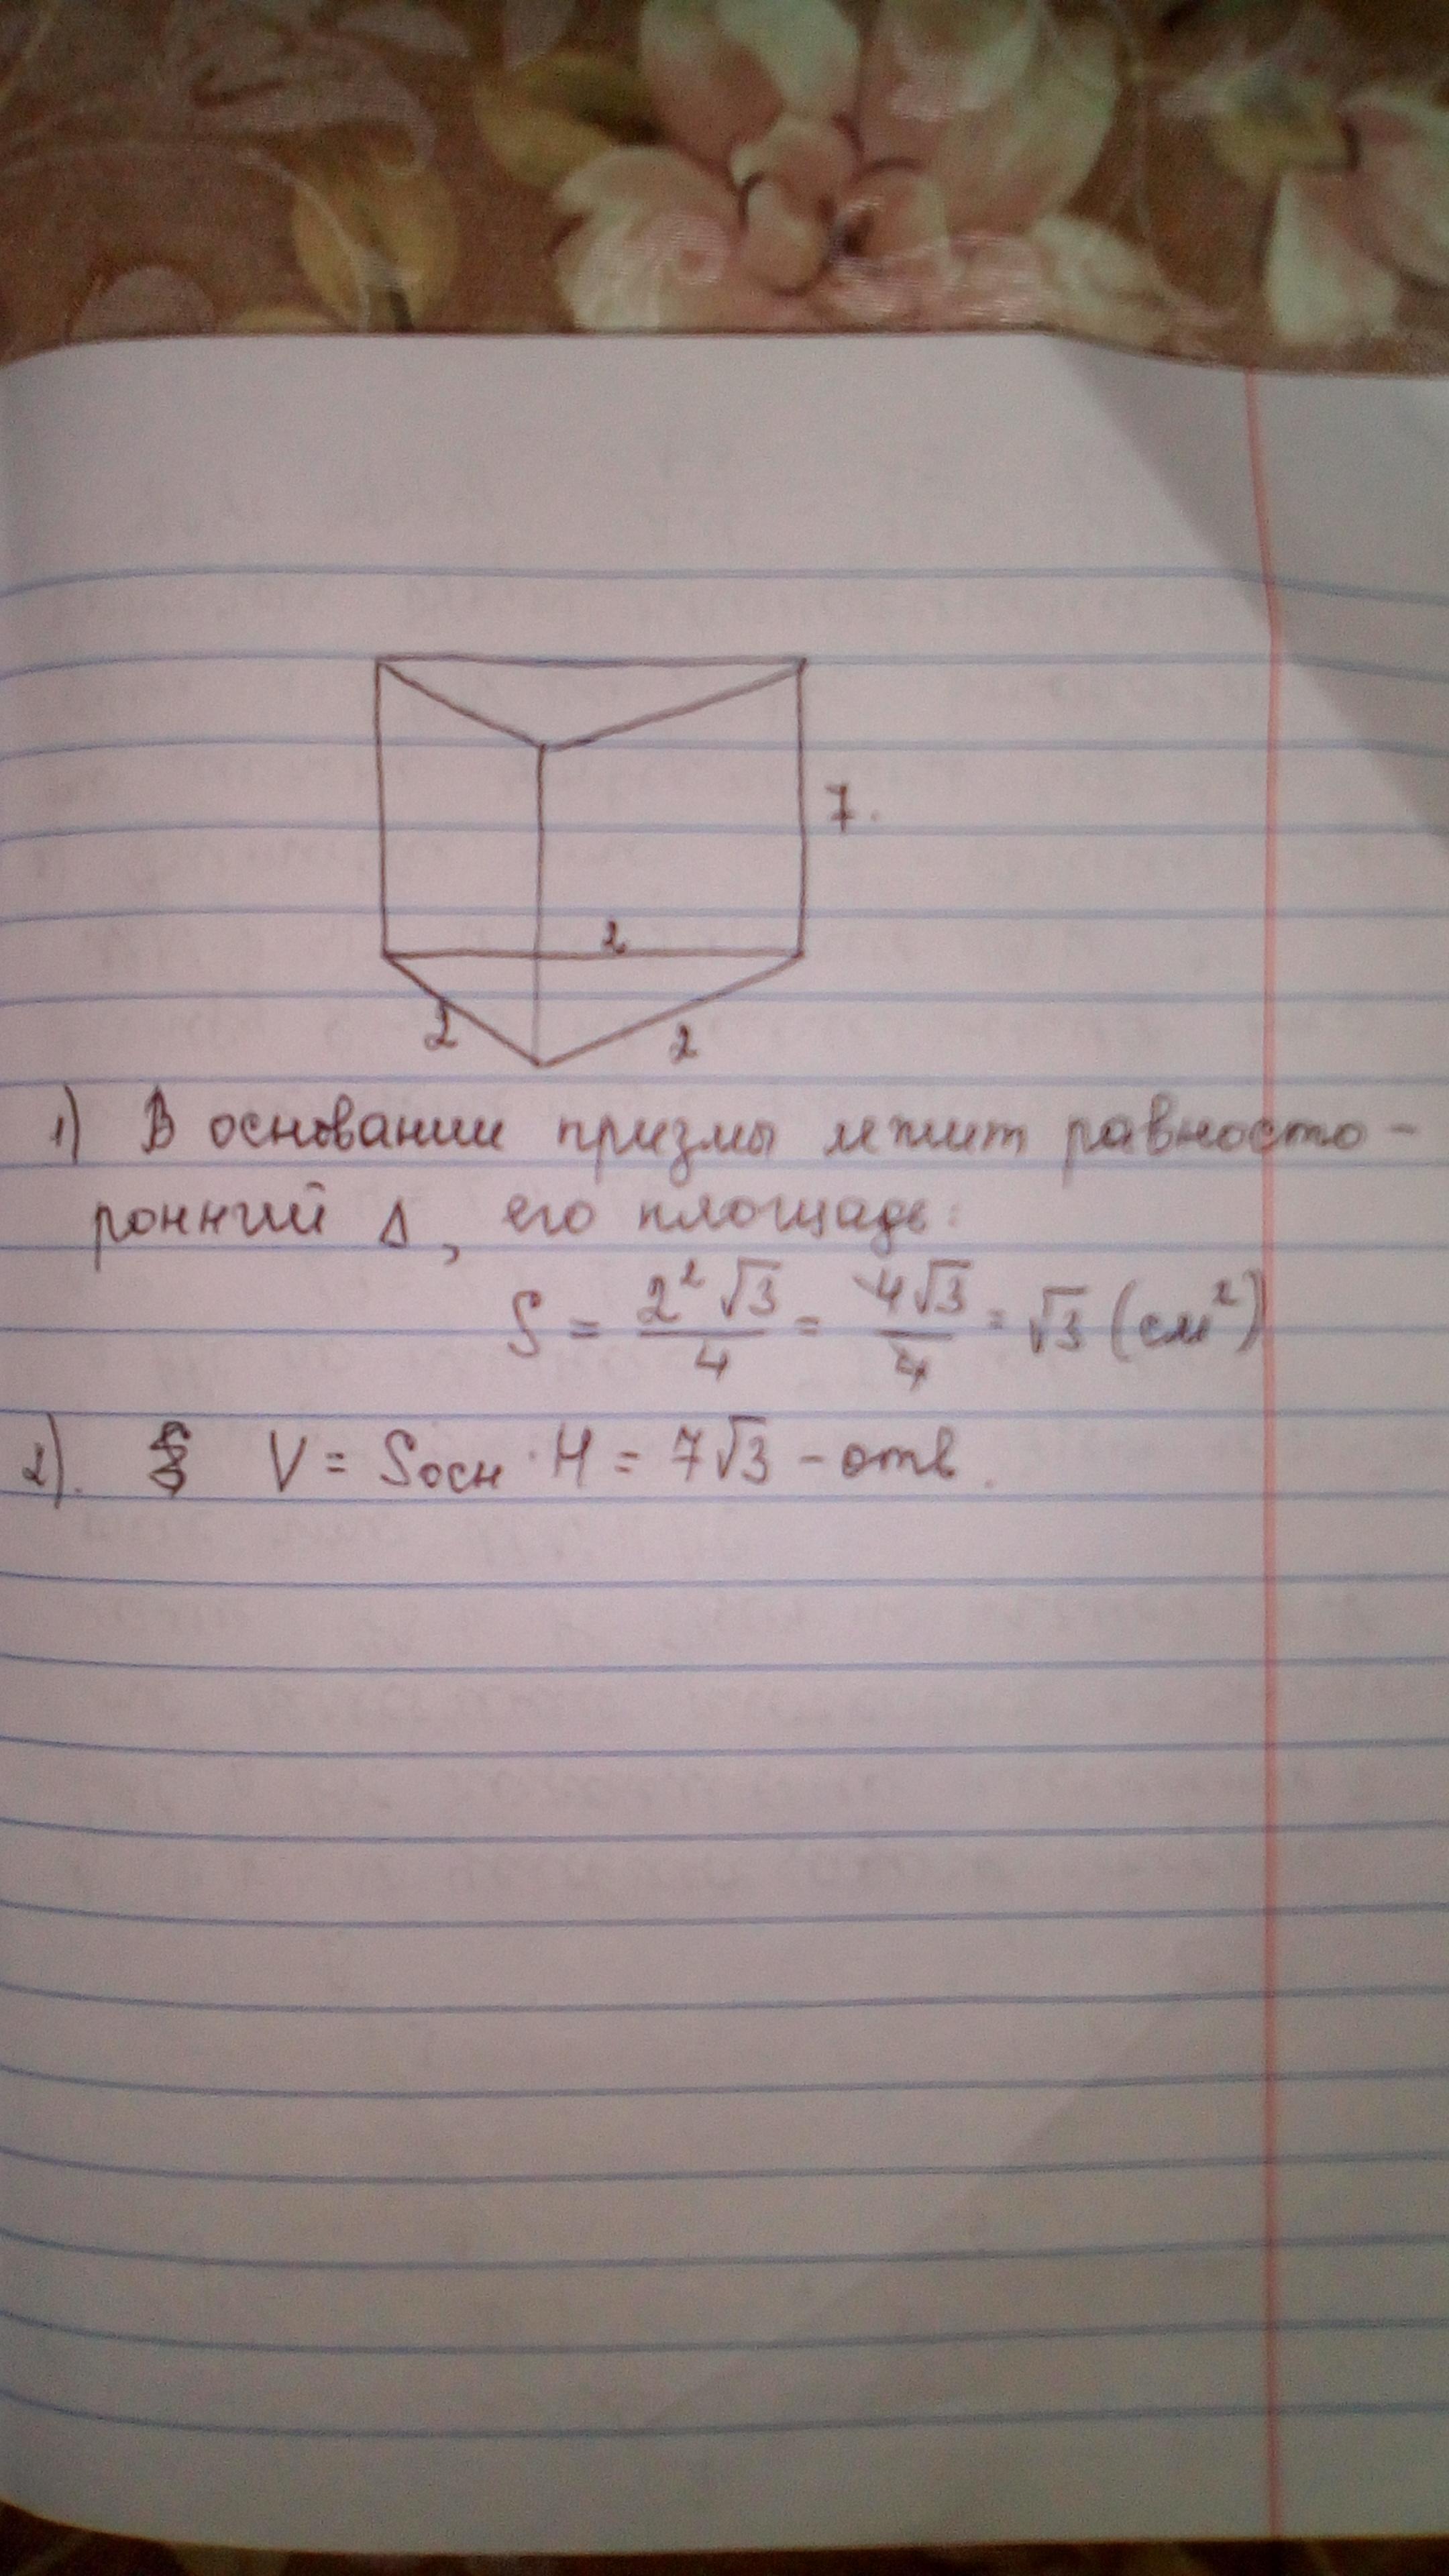 7.
2
2
2
1) В основании призмы лежит равносто-
ронний Δ, его площадь:
S = 2² √3 / 4 = 4√3 / 4 = √3 (см²)
2). V = Sосн · H = 7√3 - отв.